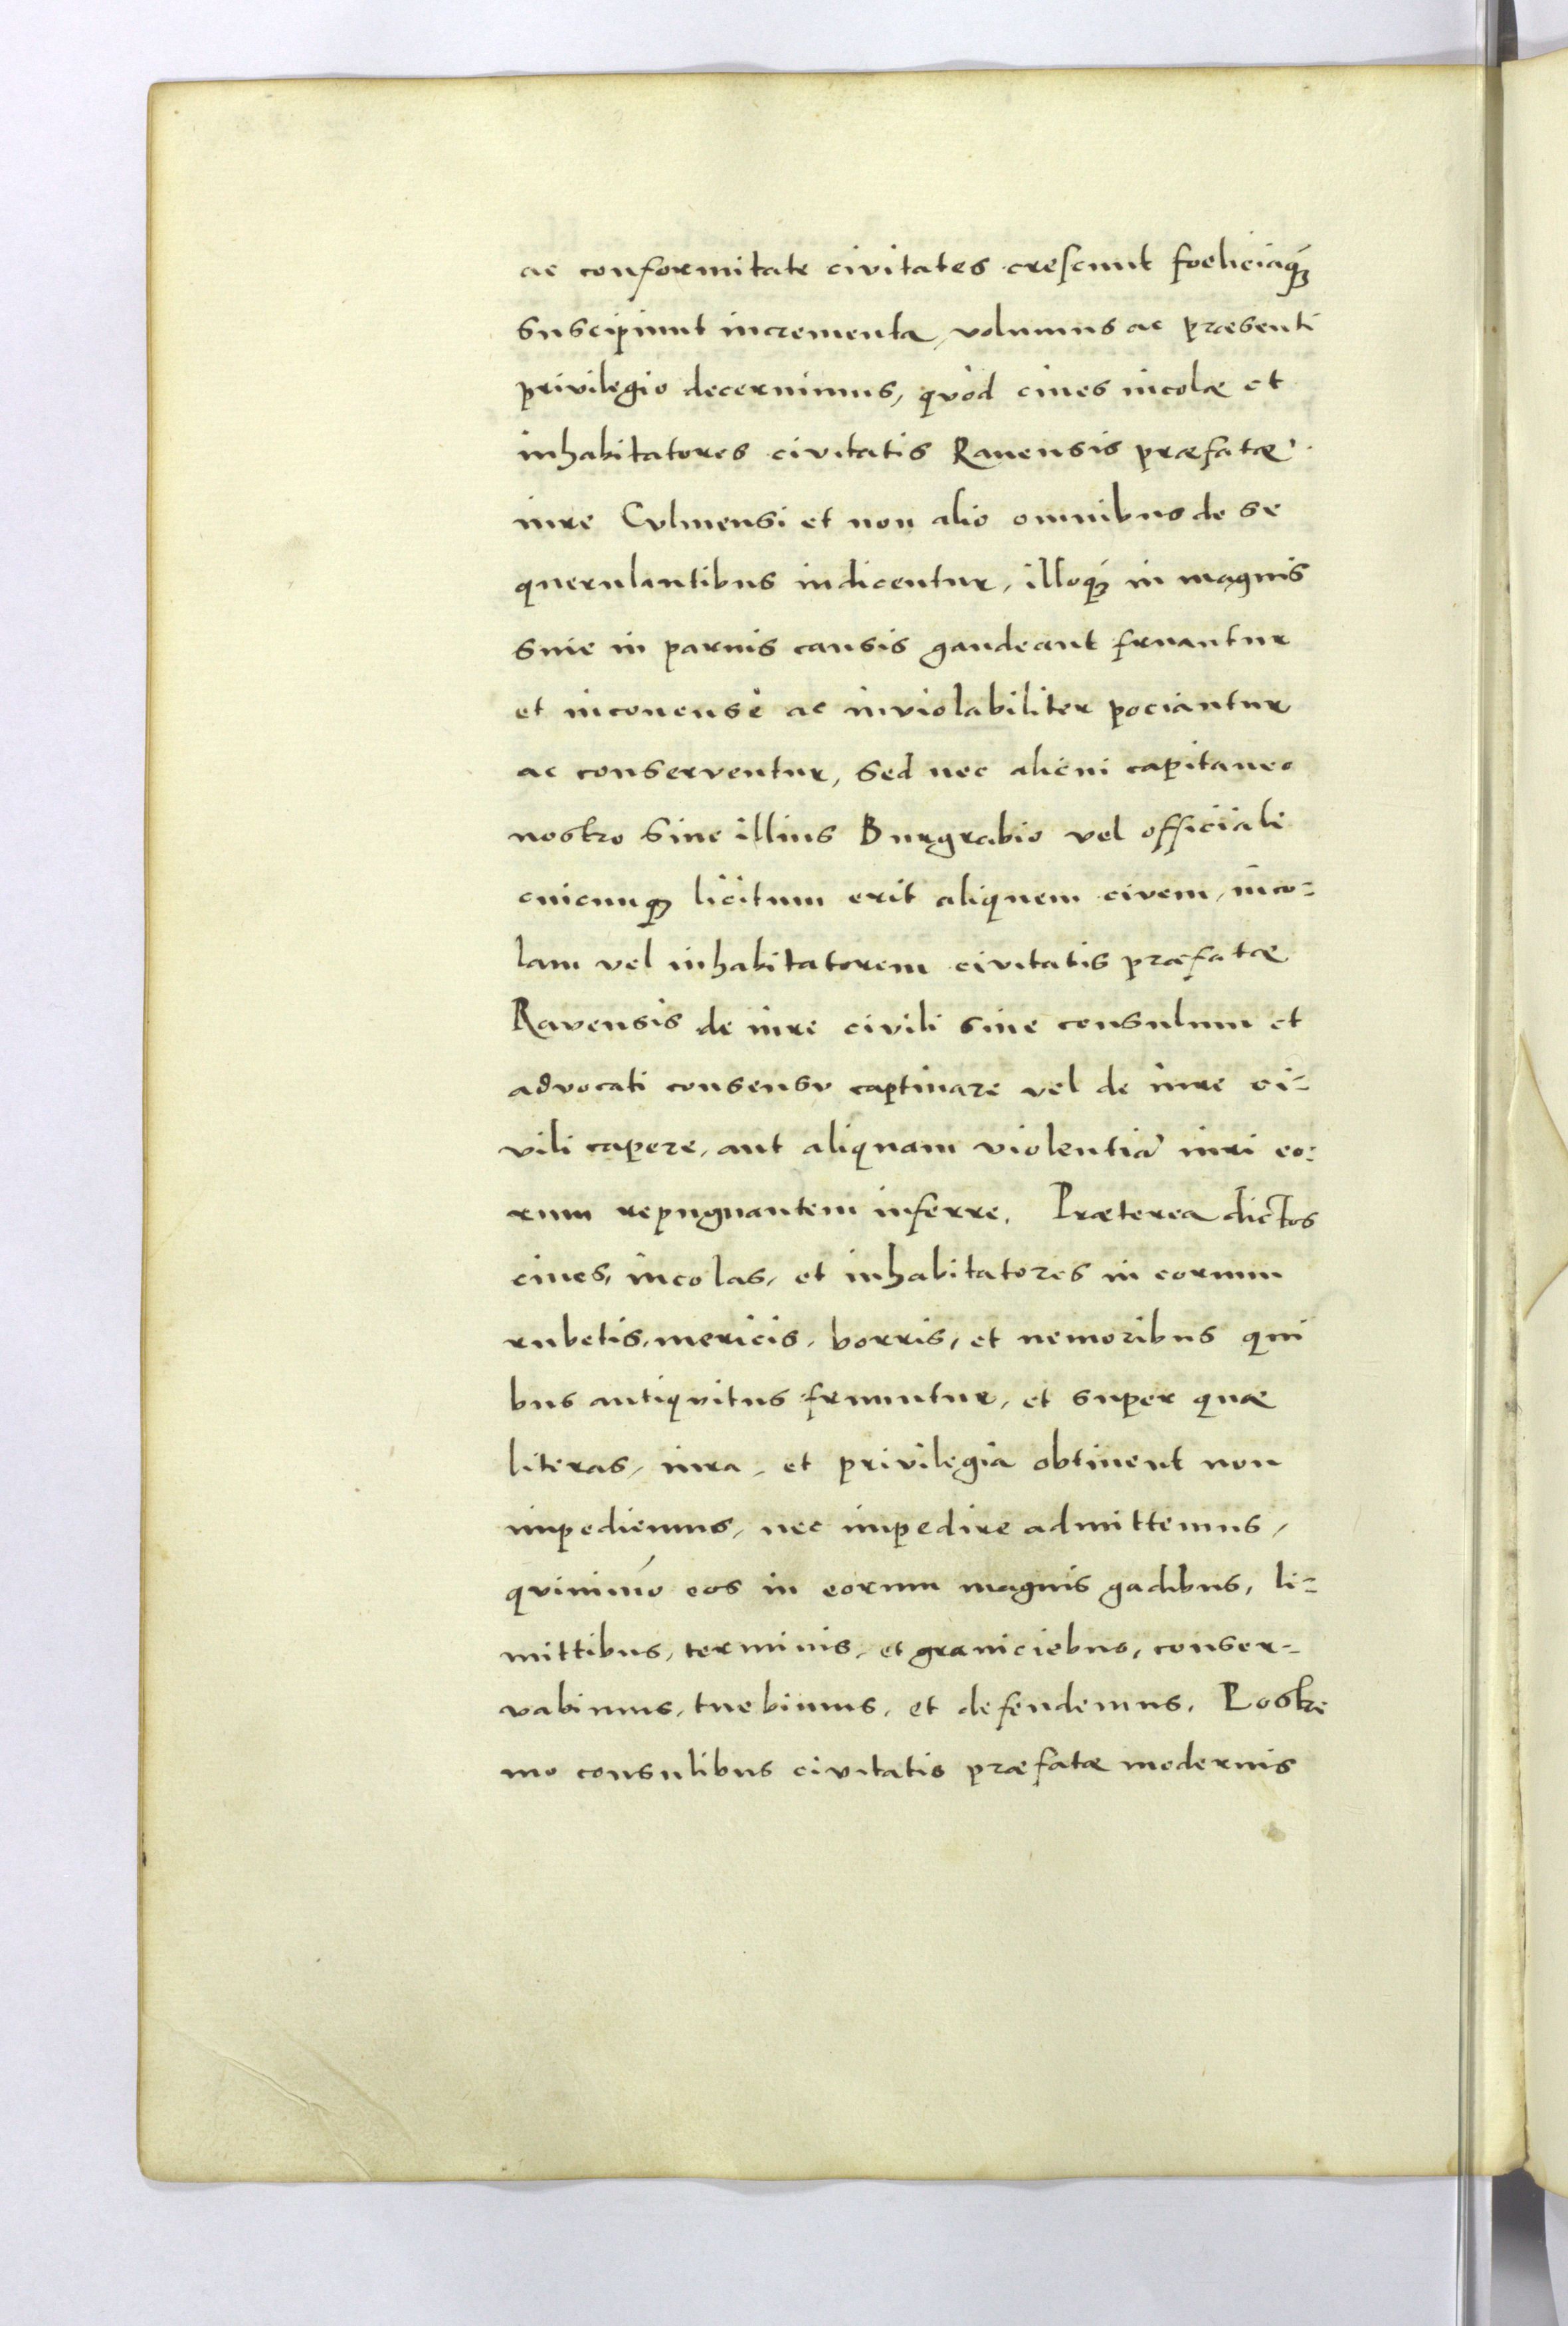 ac conformitate civitates crescunt foeliciaq́ꝫ
suscipiunt incrementa, volumus ac præsenti
privilegio decernimus, qvòd ciues incolæ et
inhabitatores civitatis Rauensis præfatæ
iure Cvlmensi et non alio omnibus de se
querulantibus iudicentur, illoq́ꝫ in magnis
siue in paruis causis gaudeant fruantur
et inconcusè ac inviolabiliter pociantur
ac conserventur, sed nec alicui capitaneo
nostro siue illius Burgrabio vel officiali
cuicunqꝫ licitum erit aliquem civem, inco-
lam vel inhabitatorem civitatis præfatæ
Ravensis de iure civili sine consulum et
advocati consensv captiuare vel de iure ci-
vili capere, aut aliquam violentiã iuri eo-
rum repugnantem inferre. Præterea dictos
ciues, incolas, et inhabitatores in eorum
rubetis, mericis, borris, et nemoribus qui
bus antiqvitus fruuntur, et super quæ
literas, iura, et privilegia obtinent non
impediemus, nec impedire admittemus,
qvinimó eos in eorum magnis gadibus, li-
mittibus, terminis, et graniciebus, conser-
vabimus, tuebimus, et defendemus. Postre
mo consulibus civitatis præfatæ modernis